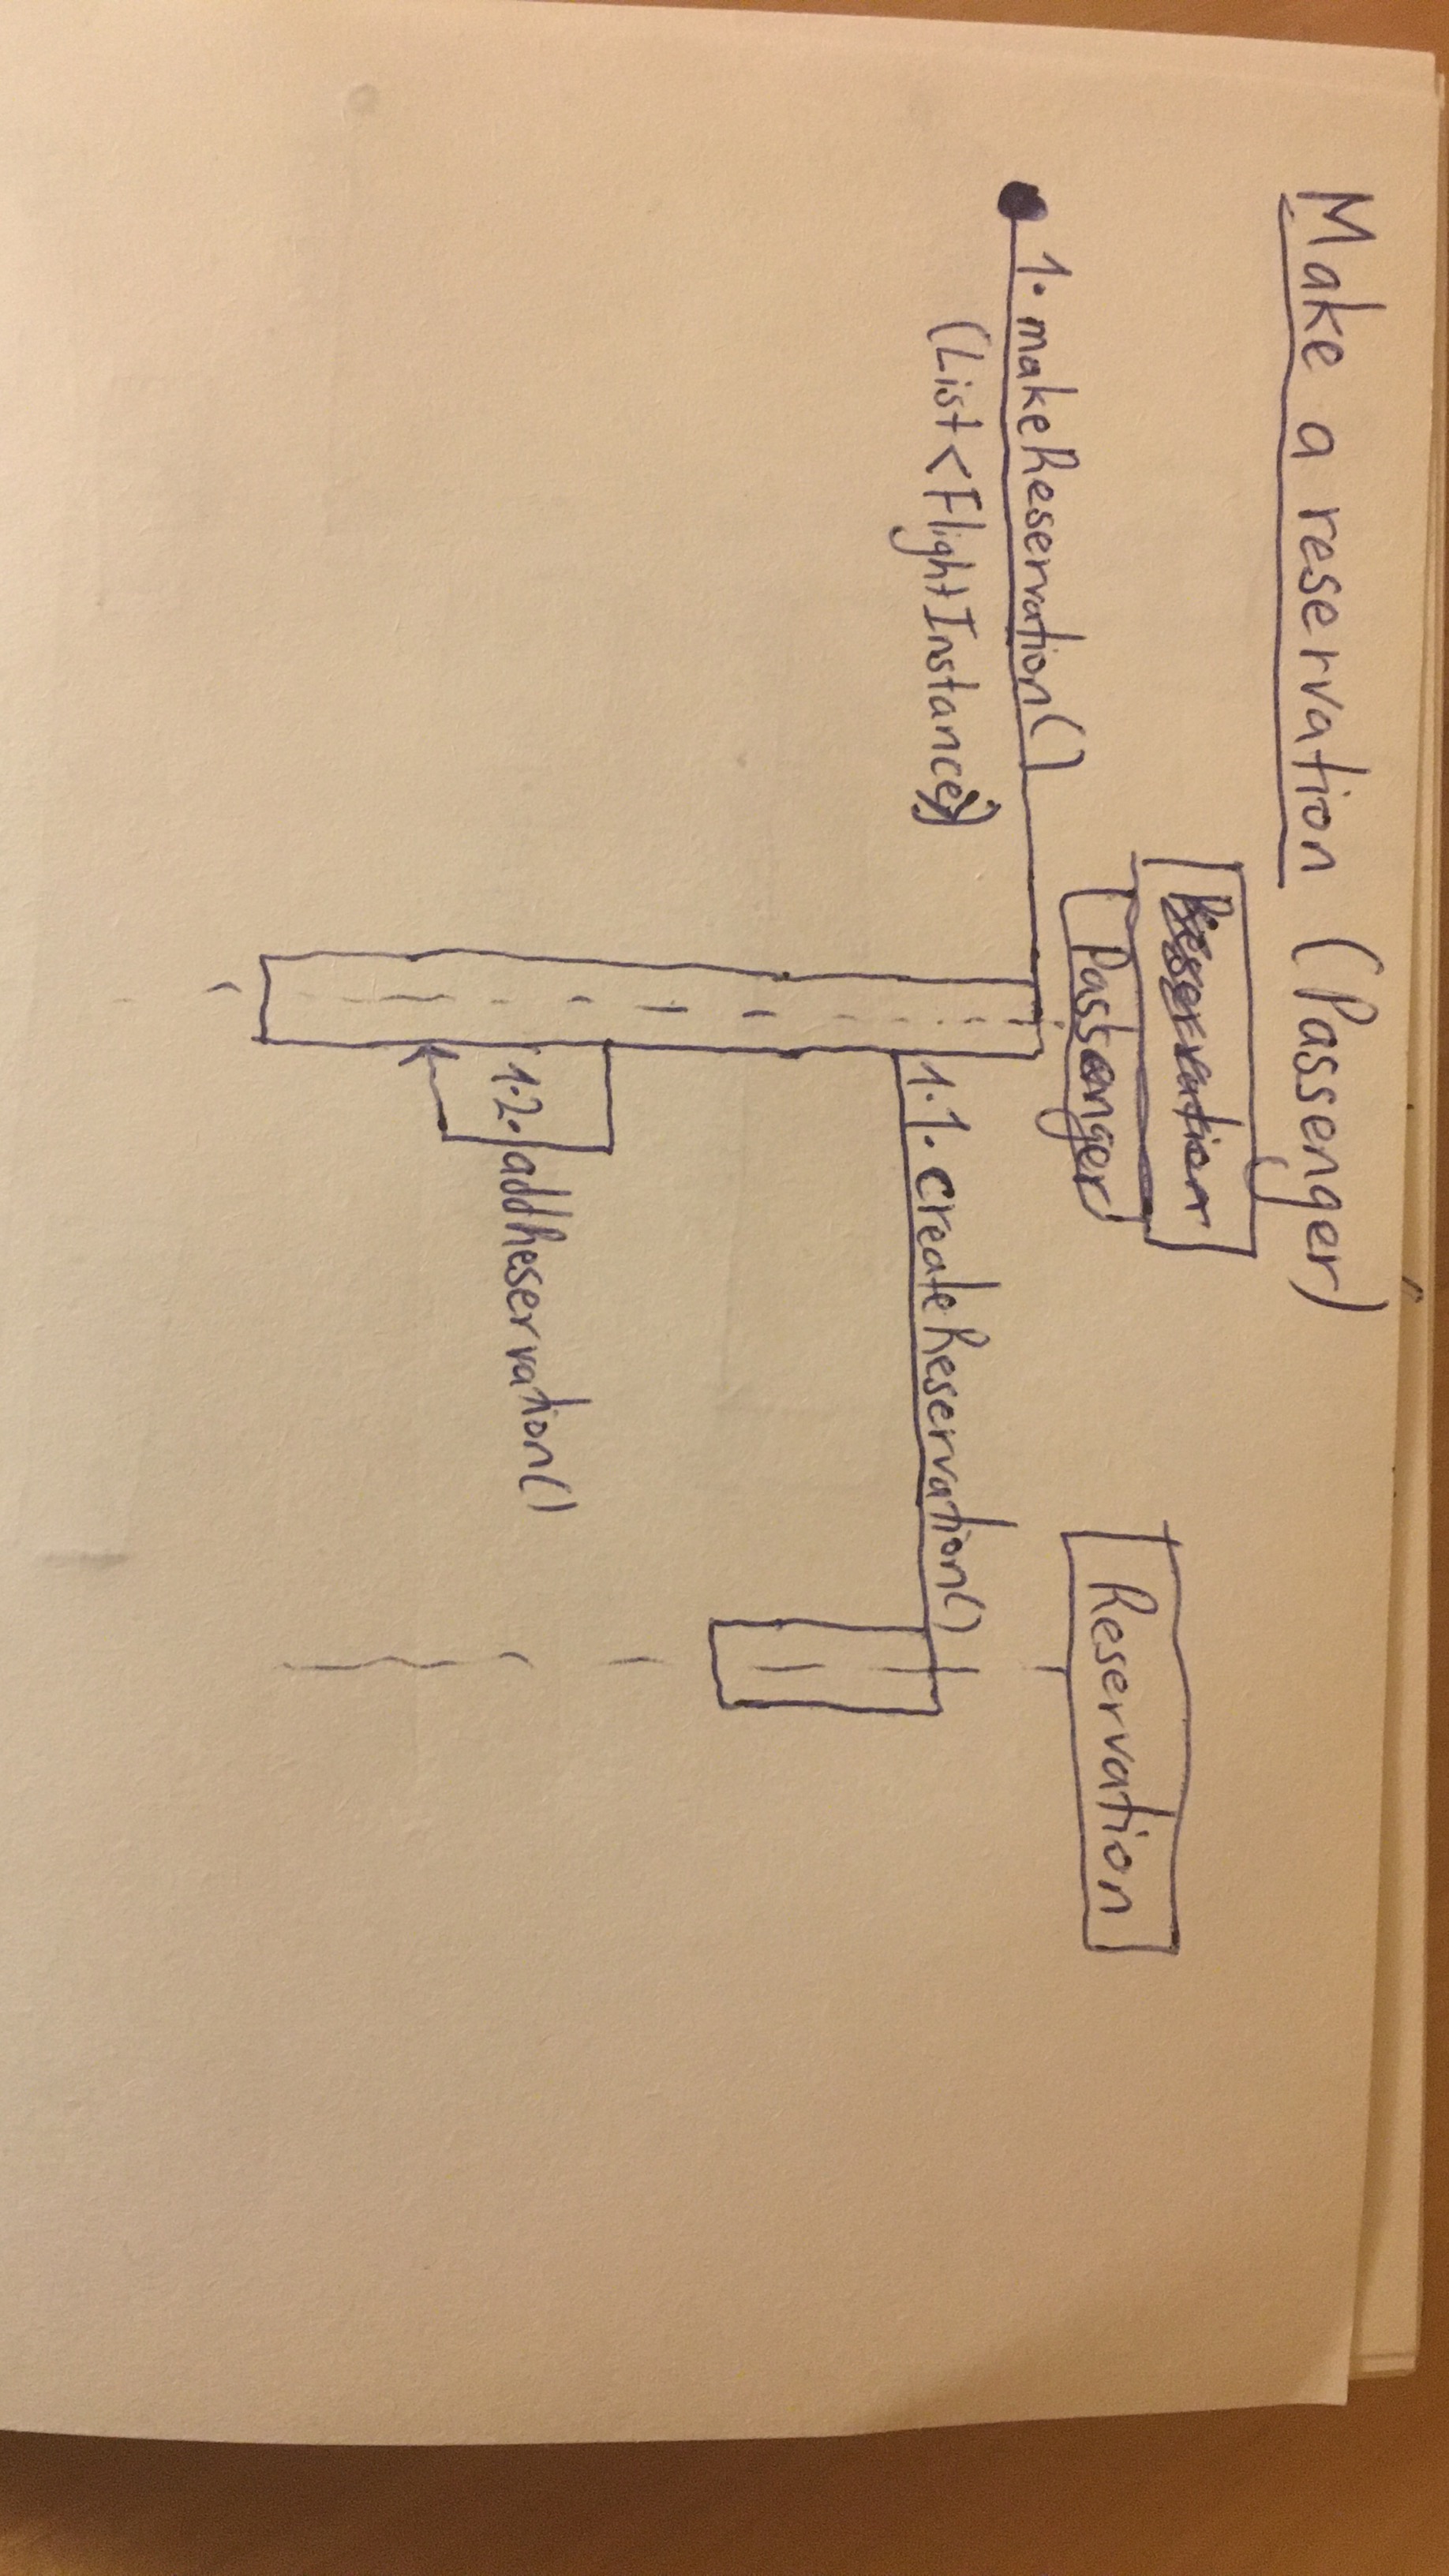 Make a reservation (Passenger)
Reservation
Passenger
Reservation
1. makeReservation()
(List<FlightInstance>)
1.1. createReservation()
1.2. addReservation()